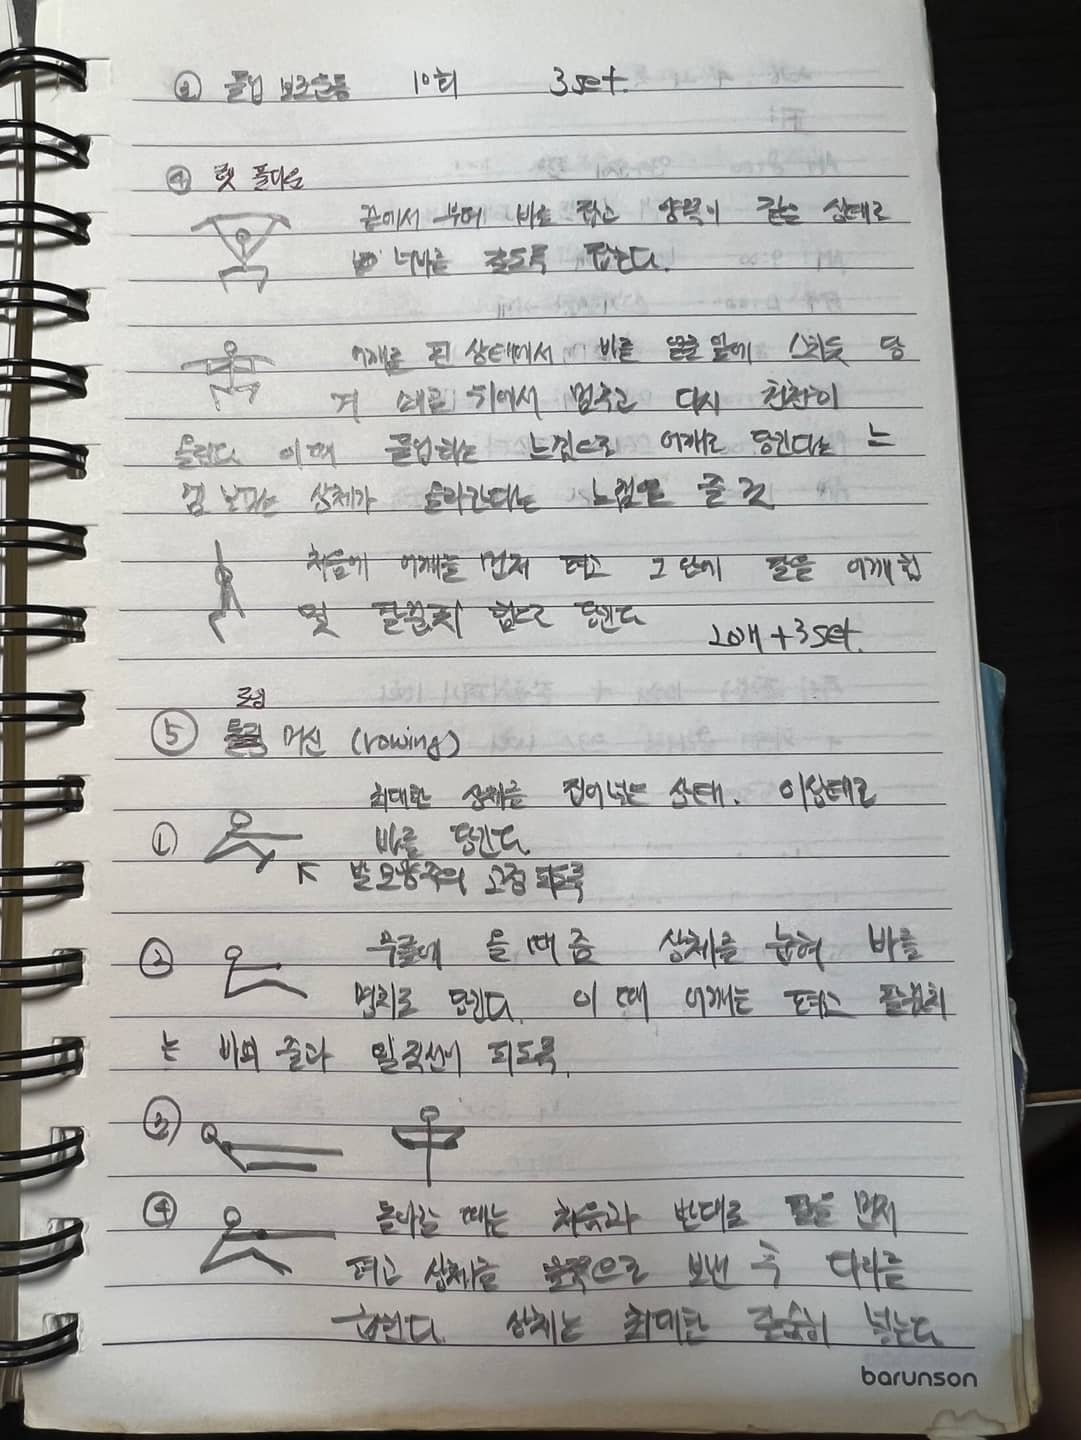 ③ 풀업 보조운동 10회 3set.
④ 렛 풀다운
끝에서 부터 바로 잡고 양쪽이 같은 상태로
너비를 갖도록 잡는다.
어깨로 편 상태에서 바를 얼굴 앞에 스치듯 당
겨 쇄골 위에서 멈추고 다시 천천히
올린다. 이 때 풀업하는 느낌으로 어깨로 당긴다는 느
낌 보다는 상체가 올라간다는 느낌을 줄 것
처음에 어깨를 먼저 펴고 그 안에 팔을 어깨 힘
및 팔꿈치 힘으로 당긴다
20개 + 3set.
로잉
⑤ 머신 (rowing)
최대한 상체를 집어넣는 상태. 이상태로
① 바를 당긴다.
발모양주의 고정 되도록
② 무릎에 올 때 쯤 상체를 눕혀 바를
명치로 당긴다. 이 때 어깨는 펴고 팔꿈치
는 바의 줄과 일직선이 되도록.
③
④ 돌아갈 때는 처음과 반대로 팔을 먼저
펴고 상체를 앞쪽으로 보낸 후 다리를
굽힌다. 상체는 최대한 깊숙히 넣는다
barunson